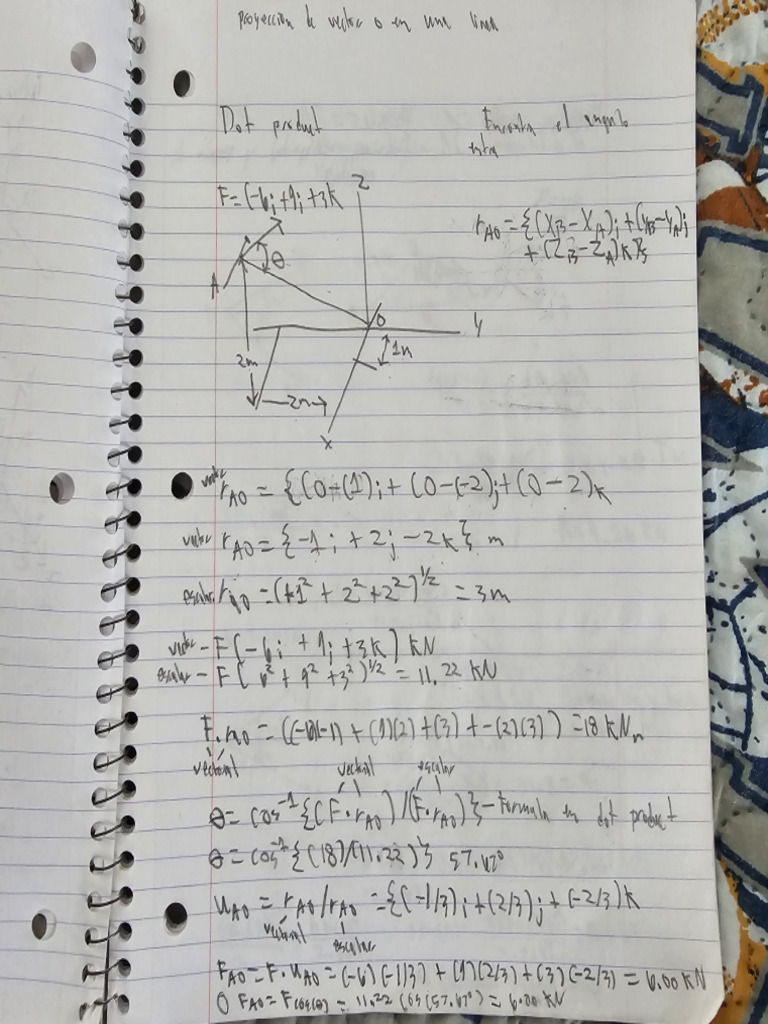 proyeccion de vector o en una linea
Dot product
Encontra el angulo
ntra
F=(-6i+9j+3k
Z
rAO={(XB-XA)i+(YB-YA)j
+(ZB-ZA)k}
A
θ
O
Y
1m
2m
2m
X
vector rAO = {(0-(1)i+(0-(-2)j+(0-2)k
vector rAO={-1i+2j-2k} m
escalar rAO =(+1²+2²+2²)^1/2 = 3m
vector - F(-6i+9j+3k) kN
escalar - F(6²+9²+3²)^1/2 = 11.22 kN
F.rAO = ((-6)(-1)+(9)(2)+(3)+-(2)(3)) =18 kNm
vectorial
vectorial escalar
θ= cos⁻¹{(F·rAO)/(F·rAO)}-Formula en dot product
θ=cos⁻¹{(18)/(11.22)} 57.67°
UAO = rAO/rAO ={(-1/3)i+(2/3)j+(-2/3)k
vectorial escalar
FAO=F·UAO=(-6)(-1/3)+(9)(2/3)+(3)(-2/3)=6.00 kN
O FAO=Fcos(θ) = 11.22 cos(57.67°)=6.00 kN